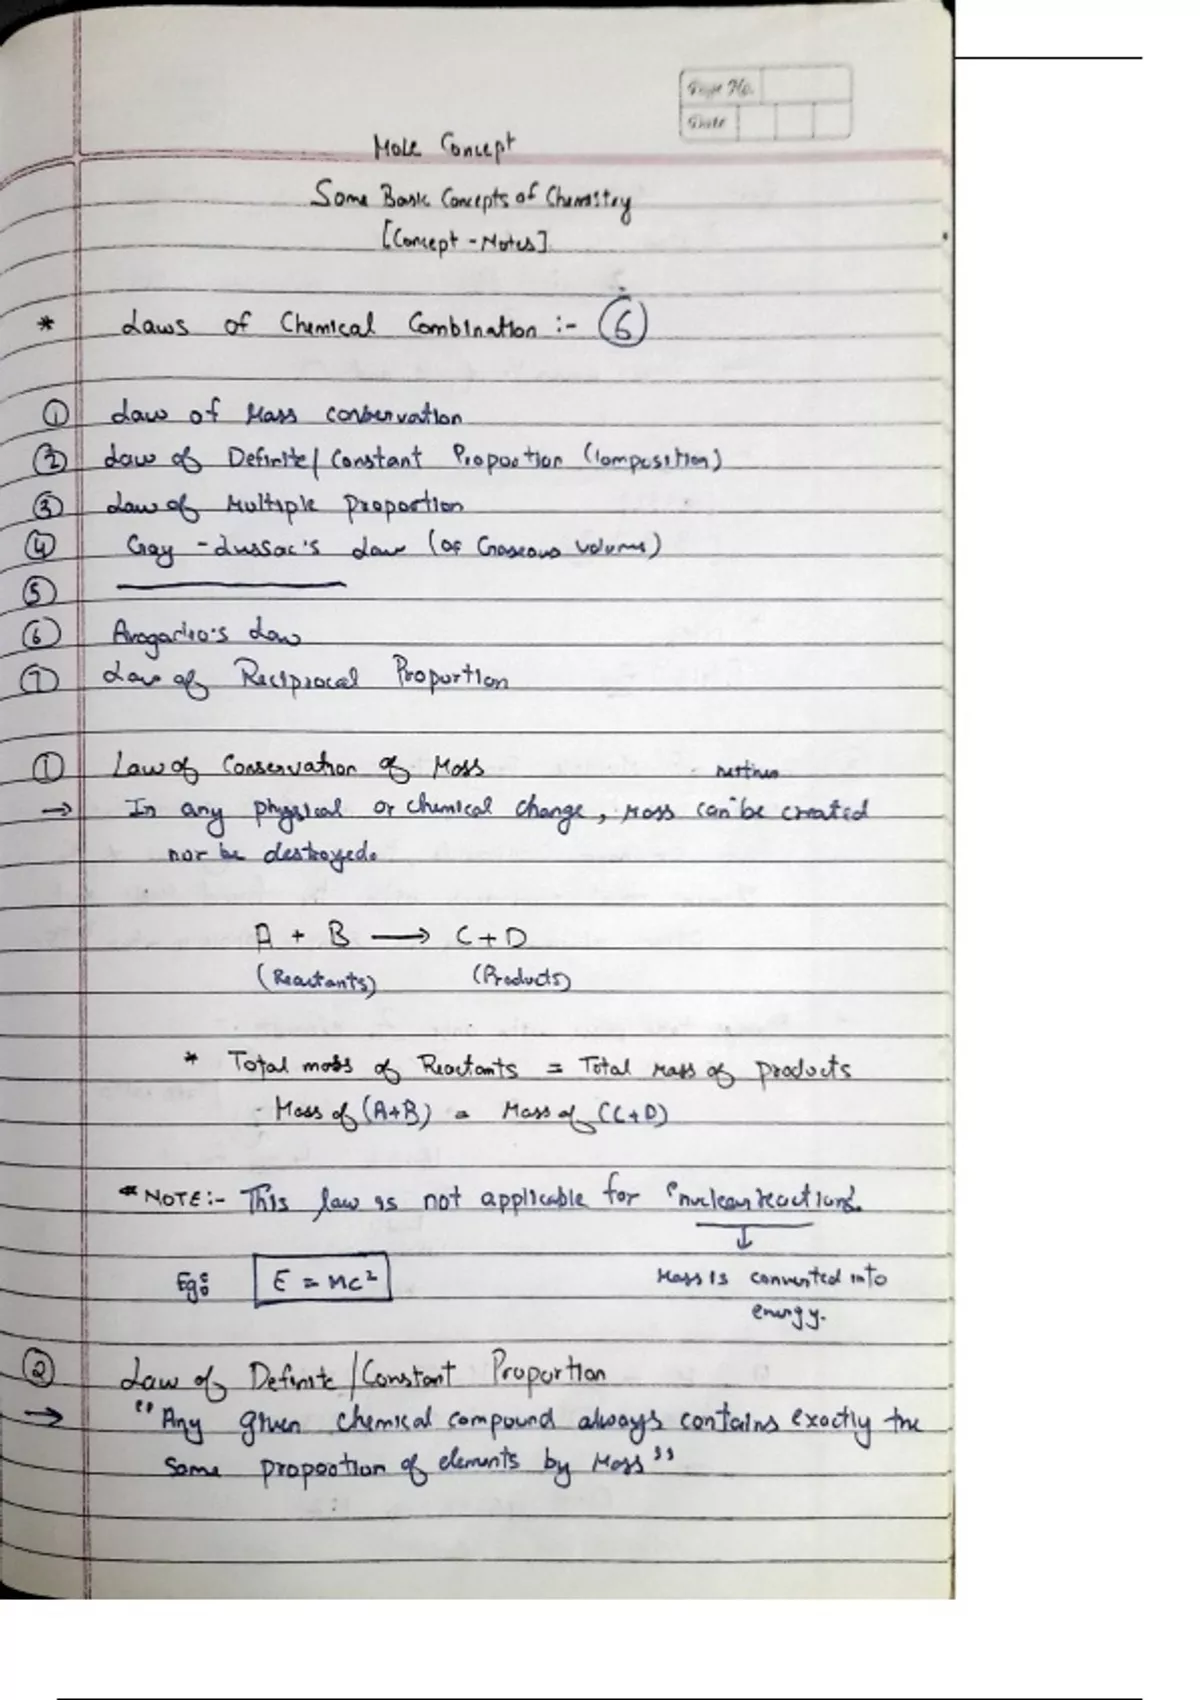 Page No.
Date
Mole Concept
Some Basic Concepts of Chemistry
[Concept - Notes]
* Laws of Chemical Combination :- 6
① Law of Mass conservation
② Law of Definite/Constant Proportion (composition)
③ Law of Multiple proportion
④ Gay-Lussac's Law (of Gaseous volume)
⑤
⑥ Avogadro's Law
⑦ Law of Reciprocal Proportion
① Law of Conservation of Mass
neither
→ In any physical or chemical change, Mass can be created
nor be destroyed.
A + B ⟶ C+D
(Reactants) (Products)
* Total mass of Reactants = Total Mass of products
Mass of (A+B) = Mass of (C+D)
* NOTE:- This law is not applicable for "nuclear reactions.
↓
Eg: E = Mc² Mass is converted into
energy.
② Law of Definite/Constant Proportion
→ "Any given chemical compound always contains exactly the
same proportion of elements by Mass"